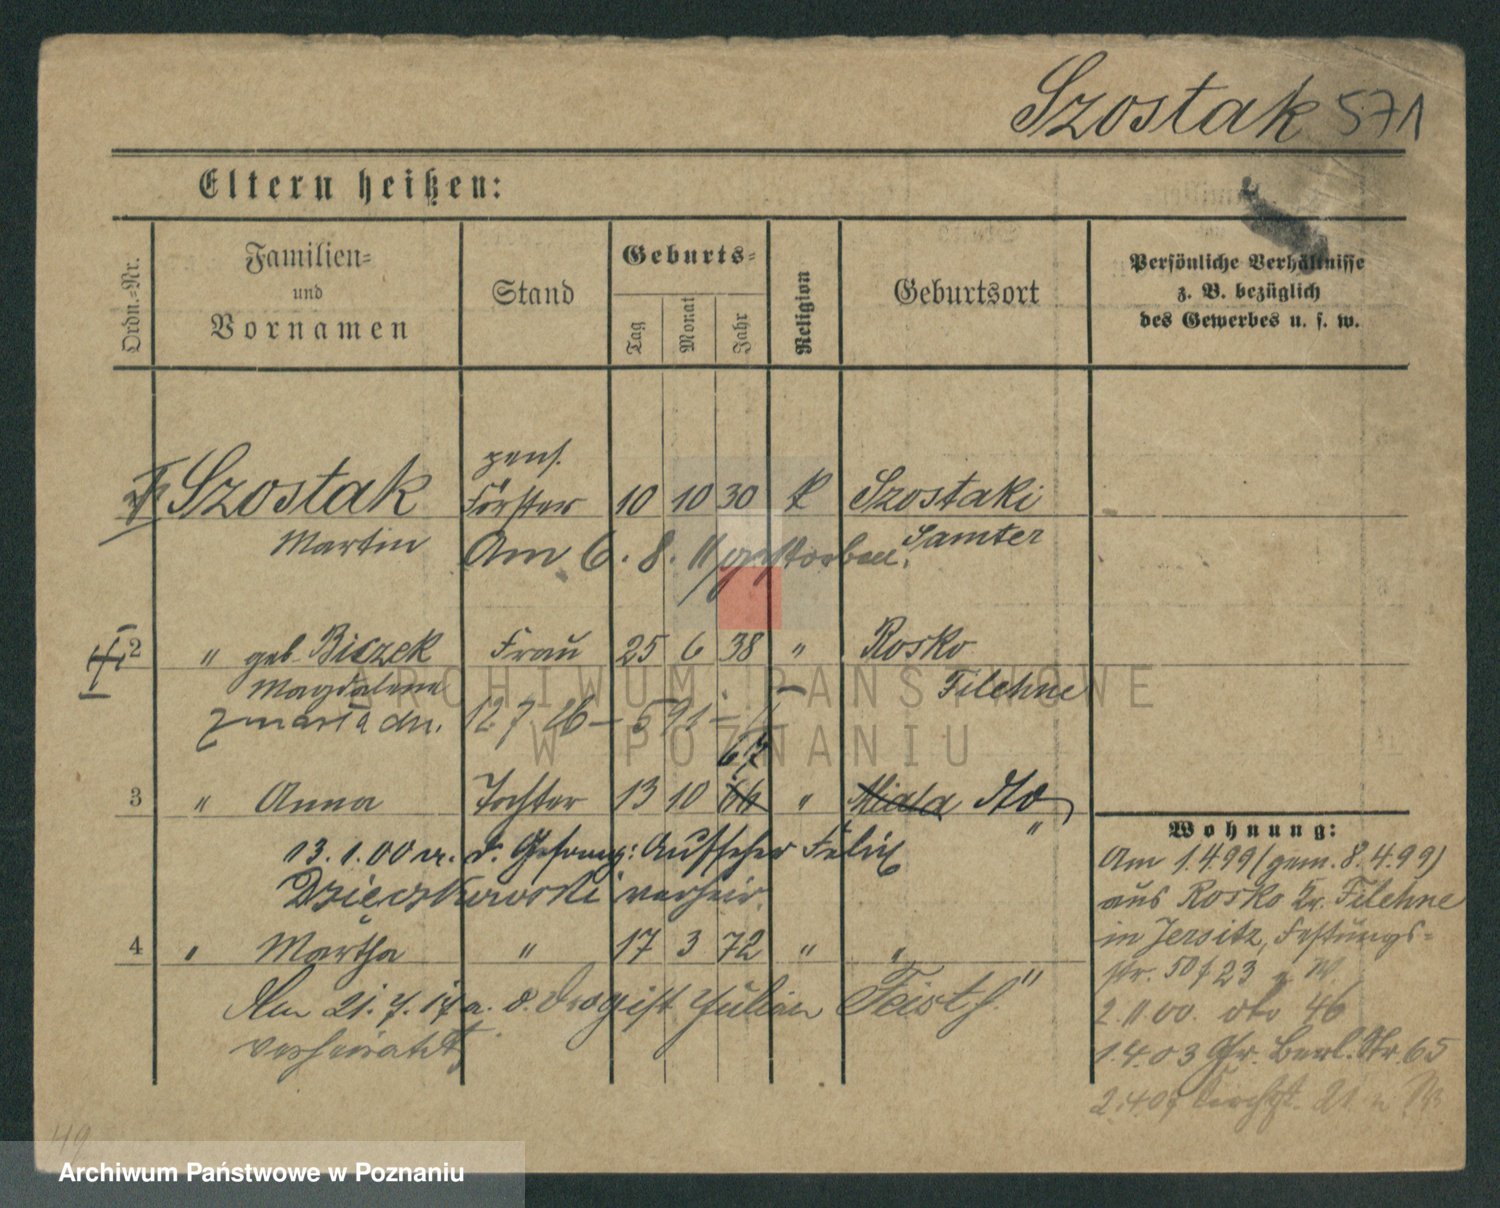 Szostak 571
Eltern heißen:
Ordn.=Nr.
Familien=
und
Vornamen
Stand
Geburts=
Tag
Monat
Jahr
Religion
Geburtsort
Persönliche Verhältnisse
z. B. bezüglich
des Gewerbes u. s. w.
pens.
Szostak Förster 10 10 30 k Szostaki
Martin Samter
Am 6. 8. 11 gestorben.
2 " geb. Biczek Frau 25 6 38 " Rosko
Magdalena Filehne
zmarła dn. 12 7 26 – 591 –
67
3 " Anna Tochter 13 10 66 " Miala
13. 1. 00 m. d. Gefang: Aufseher Felix
Dzieczkowski verheir.
4 " Martha " 17 3 72 " "
Am 21. 7. 17 a. d. Drogist Julian Feist
verheiratet
Wohnung:
Am 1.4 99 (gem. 8.4.99)
aus Rosko Kr. Filehne
in Jersitz, Festungs=
str. 50 f 23
2. 11 00. dto 46
1.4.03 Gr. Berl. Str. 65
2.4.07 21
49
ARCHIWUM PAŃSTWOWE
W POZNANIU
Archiwum Państwowe w Poznaniu